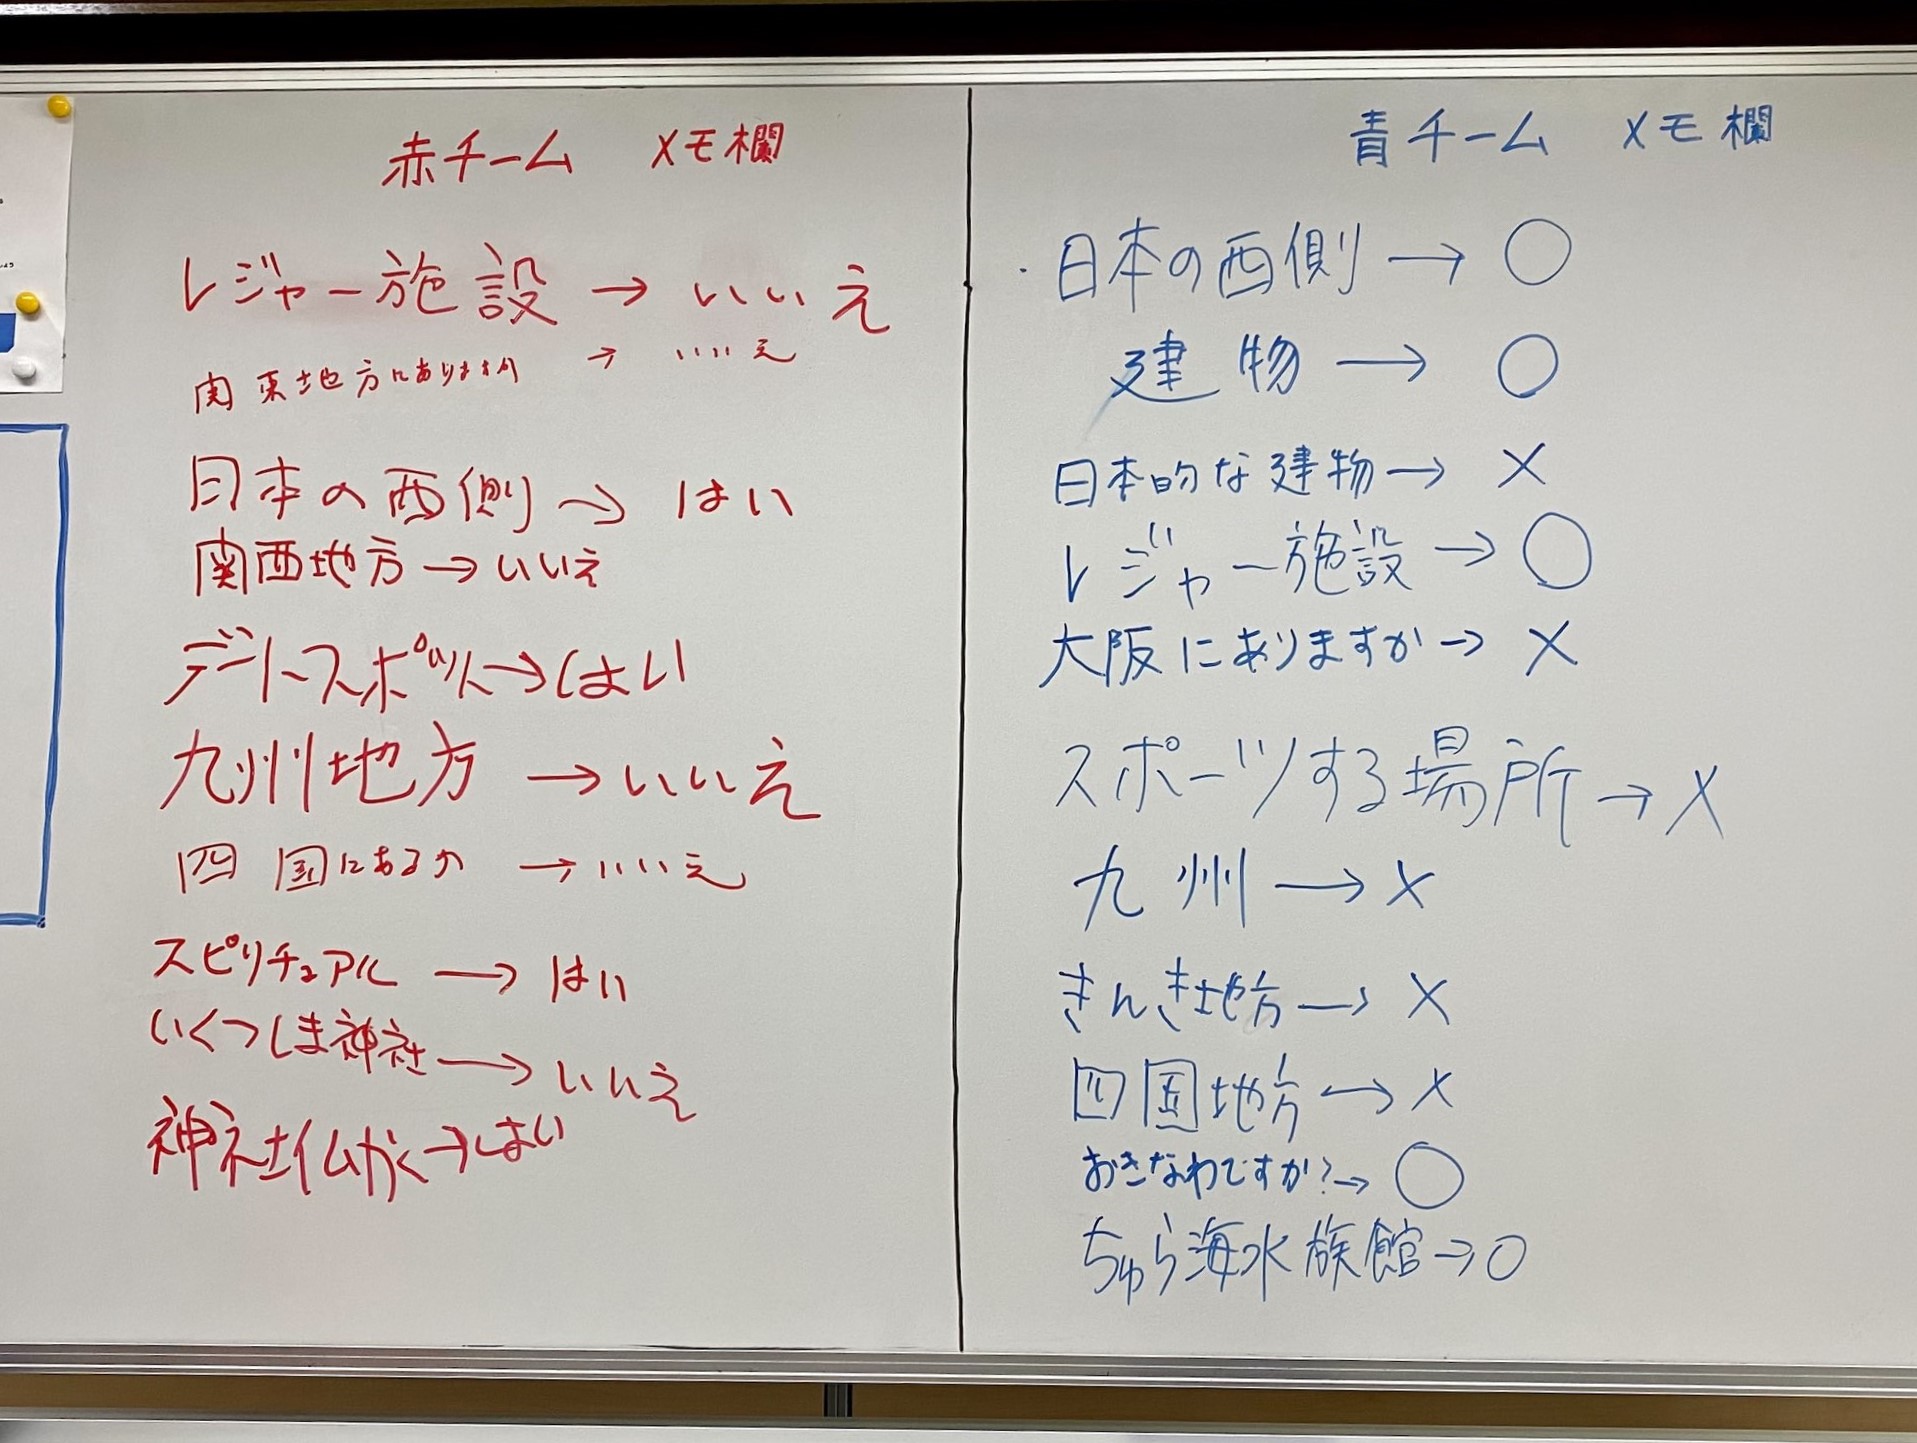 赤チーム　メモ欄
レジャー施設 → いいえ
関東地方にありますか → いいえ
日本の西側 → はい
関西地方 → いいえ
デートスポット → はい
九州地方 → いいえ
四国にあるか → いいえ
スピリチュアル → はい
いくつしま神社 → いいえ
神社仏かく → はい
青チーム　メモ欄
・日本の西側 → ○
建物 → ○
日本的な建物 → ×
レジャー施設 → ○
大阪にありますか → ×
スポーツする場所 → ×
九州 → ×
きんき地方 → ×
四国地方 → ×
おきなわですか? → ○
ちゅら海水族館 → ○